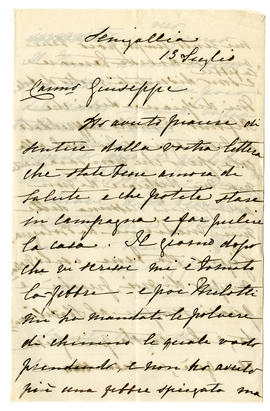 Senigallia
13 Luglio
Carmo Giuseppe
Ho avuto piacere di
sentire dalla vostra lettera
che state bene ancora di
salute e che potete stare
in campagna e far pulire
la casa. Il giorno dopo
che vi scrissi mi è tornata
la febbre e poi
mi ha mandate le polvere
di chinino le quale vado
prendendo, e non ho avuto
più una febbre spiegata ma